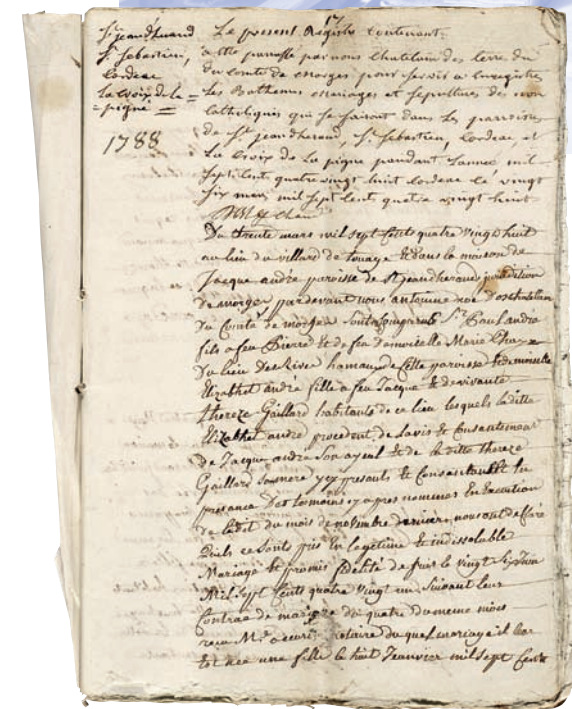 St jean d'herand
St Sebastien,
Cordeac
La Croix de la
pigne
1788
Le present Registre contenant
17
a été paraffé par nous Chatelain des terre du
du comté de morges pour servir a enregistrer
Les Bathemes mariages et sepultures des non
Catholiques qui se faisont dans les parroisses
de St jean dherand, St Sebastien, Cordeac, et
La Croix de La pigne pandant Lannée mil
sept cent quatre vingt huit Cordeac le vingt
six mars mil sept cent quatre vingt huit
Du trente mars mil sept cents quatre vingt huit
au lieu du villard de touage et dans la maison de
Jacque andré paroisse de St jean dherand juridiction
de morges pardevant nous antoinne chatellain
du Comté de morges sont Comparus Sr Paul andré
fils a feu Pierre et de feu demoiselle Marie
du lieu Des Rives hameau de Cette paroisse et demoiselle
Elizabhet andré fille a feu Jacque et de vivante
thereze Gaillard habitants de ce lieu lesquels laditte
Elizabhet andré procedent de lavis et Consantement
de Jacque andré son ayeul et de la ditte thereze
Gaillard sa mere y cy presants et Consentants et En
presance Des temoins cy apres nommes En Execution
de Ledit du mois de novembre dernier, nous ont declaré
quils ce sonts pris En legitime et indissoluble
Mariage et promis fidelité de puis le vingt six Juin
Mil sept Cents quatre vingt un suivant leur
Contrac de mariage du quatre du meme mois
recu Me notaire duquel mariage il leur
est nee une fille le huit Janvier mil sept Cent